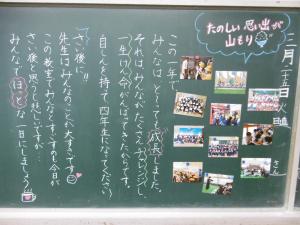 三月二十五日火曜
たのしい思い出が
山もり
この一年で
みんなは と〜っても成長しました。
それは、みんながたくさんチャレンジし、
一生けん命がんばってきたからです。
自しんを持って、四年生になってください
さい後に!!
先生はみんなのことが大すきです
この教室でみんなとすごすのも今日が
さい後と思うと悲しいですが…
みんなで ほっと な一日にしましょう